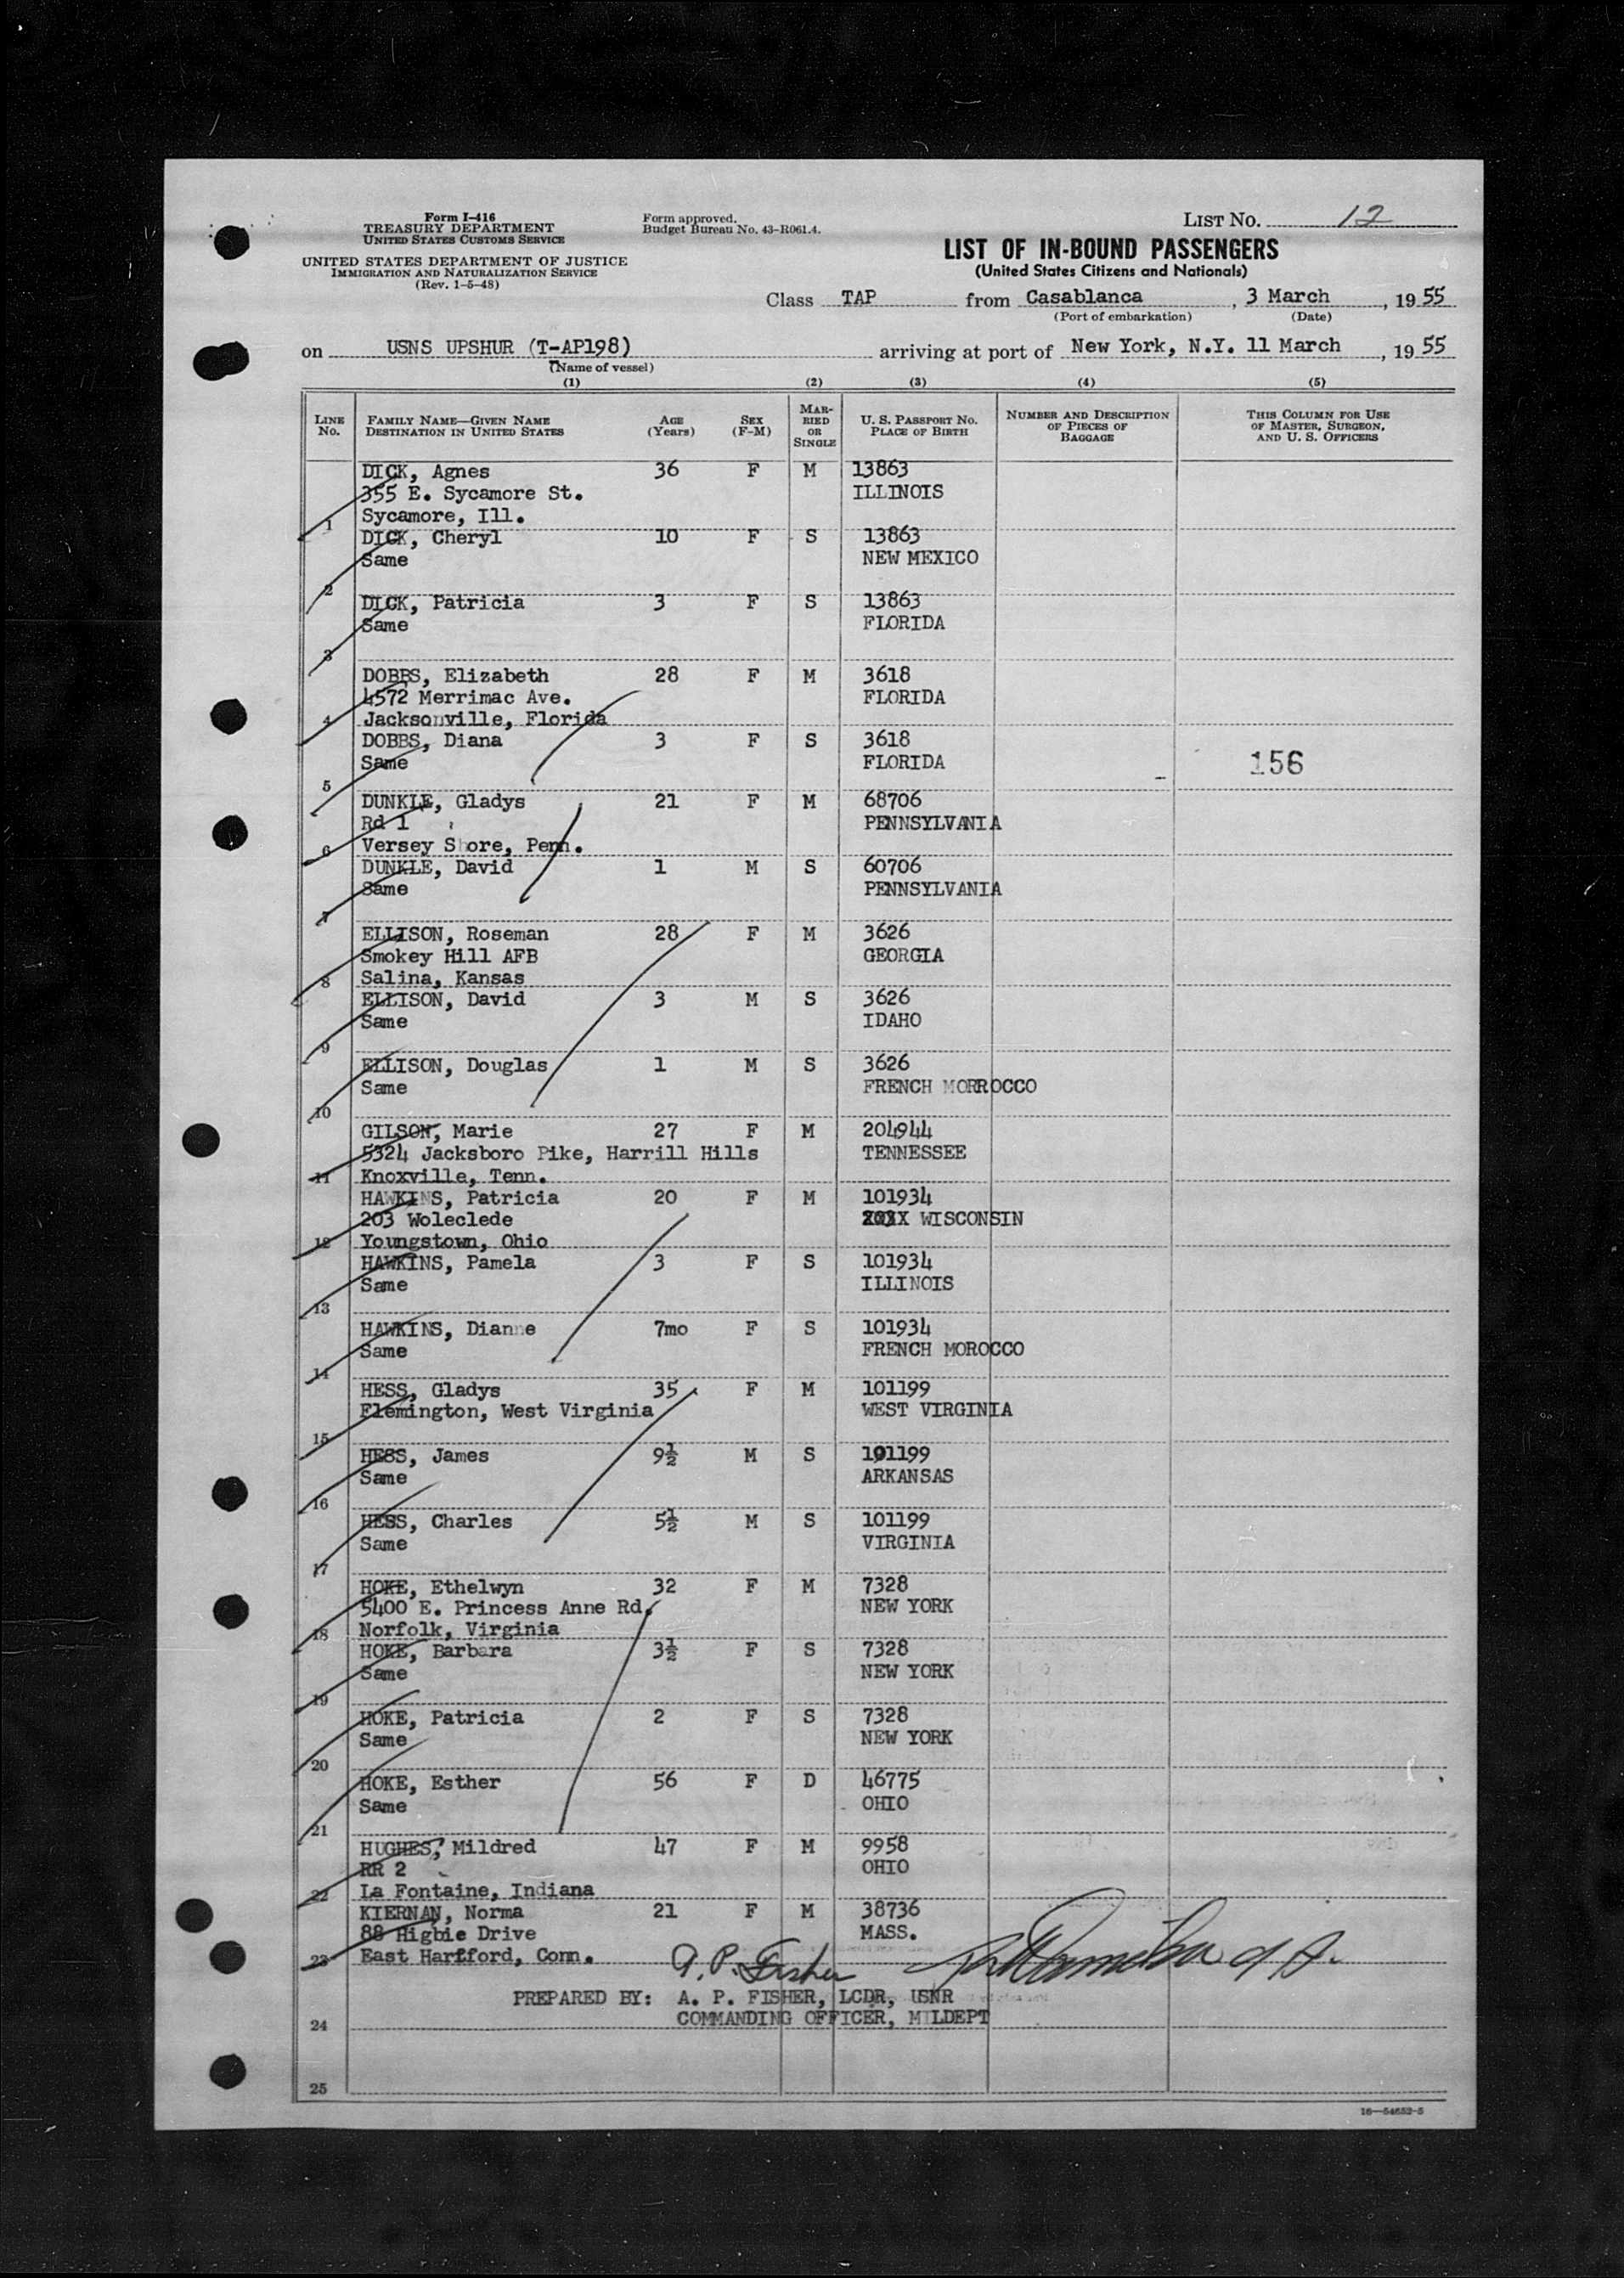 Form I-416
TREASURY DEPARTMENT
UNITED STATES CUSTOMS SERVICE
UNITED STATES DEPARTMENT OF JUSTICE
IMMIGRATION AND NATURALIZATION SERVICE
(Rev. 1-5-48)
Form approved.
Budget Bureau No. 43-R061.4.
LIST NO. 12
LIST OF IN-BOUND PASSENGERS
(United States Citizens and Nationals)
Class TAP from Casablanca, 3 March, 1955
(Port of embarkation) (Date)
on USNS UPSHUR (T-AP198) arriving at port of New York, N.Y. 11 March, 1955
(Name of vessel)
(1) (2) (3) (4) (5)
LINE No. FAMILY NAME—GIVEN NAME DESTINATION IN UNITED STATES AGE (Years) SEX (F-M) MARRIED OR SINGLE U. S. PASSPORT No. PLACE OF BIRTH NUMBER AND DESCRIPTION OF PIECES OF BAGGAGE THIS COLUMN FOR USE OF MASTER, SURGEON, AND U. S. OFFICERS
DICK, Agnes 36 F M 13863
355 E. Sycamore St. ILLINOIS
1 Sycamore, Ill.
DICK, Cheryl 10 F S 13863
Same NEW MEXICO
2
DICK, Patricia 3 F S 13863
Same FLORIDA
3
DOBBS, Elizabeth 28 F M 3618
4572 Merrimac Ave. FLORIDA
4 Jacksonville, Florida
DOBBS, Diana 3 F S 3618
Same FLORIDA 156
5
DUNKLE, Gladys 21 F M 68706
Rd 1 PENNSYLVANIA
6 Versey Shore, Penn.
DUNKLE, David 1 M S 60706
Same PENNSYLVANIA
7
ELLISON, Roseman 28 F M 3626
Smokey Hill AFB GEORGIA
8 Salina, Kansas
ELLISON, David 3 M S 3626
Same IDAHO
9
ELLISON, Douglas 1 M S 3626
Same FRENCH MORROCCO
10
GILSON, Marie 27 F M 204944
5324 Jacksboro Pike, Harrill Hills TENNESSEE
11 Knoxville, Tenn.
HAWKINS, Patricia 20 F M 101934
203 Woleclede WISCONSIN
12 Youngstown, Ohio
HAWKINS, Pamela 3 F S 101934
Same ILLINOIS
13
HAWKINS, Dianne 7mo F S 101934
Same FRENCH MOROCCO
14
HESS, Gladys 35 F M 101199
Flemington, West Virginia WEST VIRGINIA
15
HESS, James 9½ M S 101199
Same ARKANSAS
16
HESS, Charles 5½ M S 101199
Same VIRGINIA
17
HOKE, Ethelwyn 32 F M 7328
5400 E. Princess Anne Rd. NEW YORK
18 Norfolk, Virginia
HOKE, Barbara 3½ F S 7328
Same NEW YORK
19
HOKE, Patricia 2 F S 7328
Same NEW YORK
20
HOKE, Esther 56 F D 46775
Same OHIO
21
HUGHES, Mildred 47 F M 9958
RR 2 OHIO
22 La Fontaine, Indiana
KIERNAN, Norma 21 F M 38736
88 Higbie Drive MASS.
23 East Hartford, Conn.
A. P. Fisher
PREPARED BY: A. P. FISHER, LCDR, USNR
COMMANDING OFFICER, MILDEPT
24
25
16—54652-5